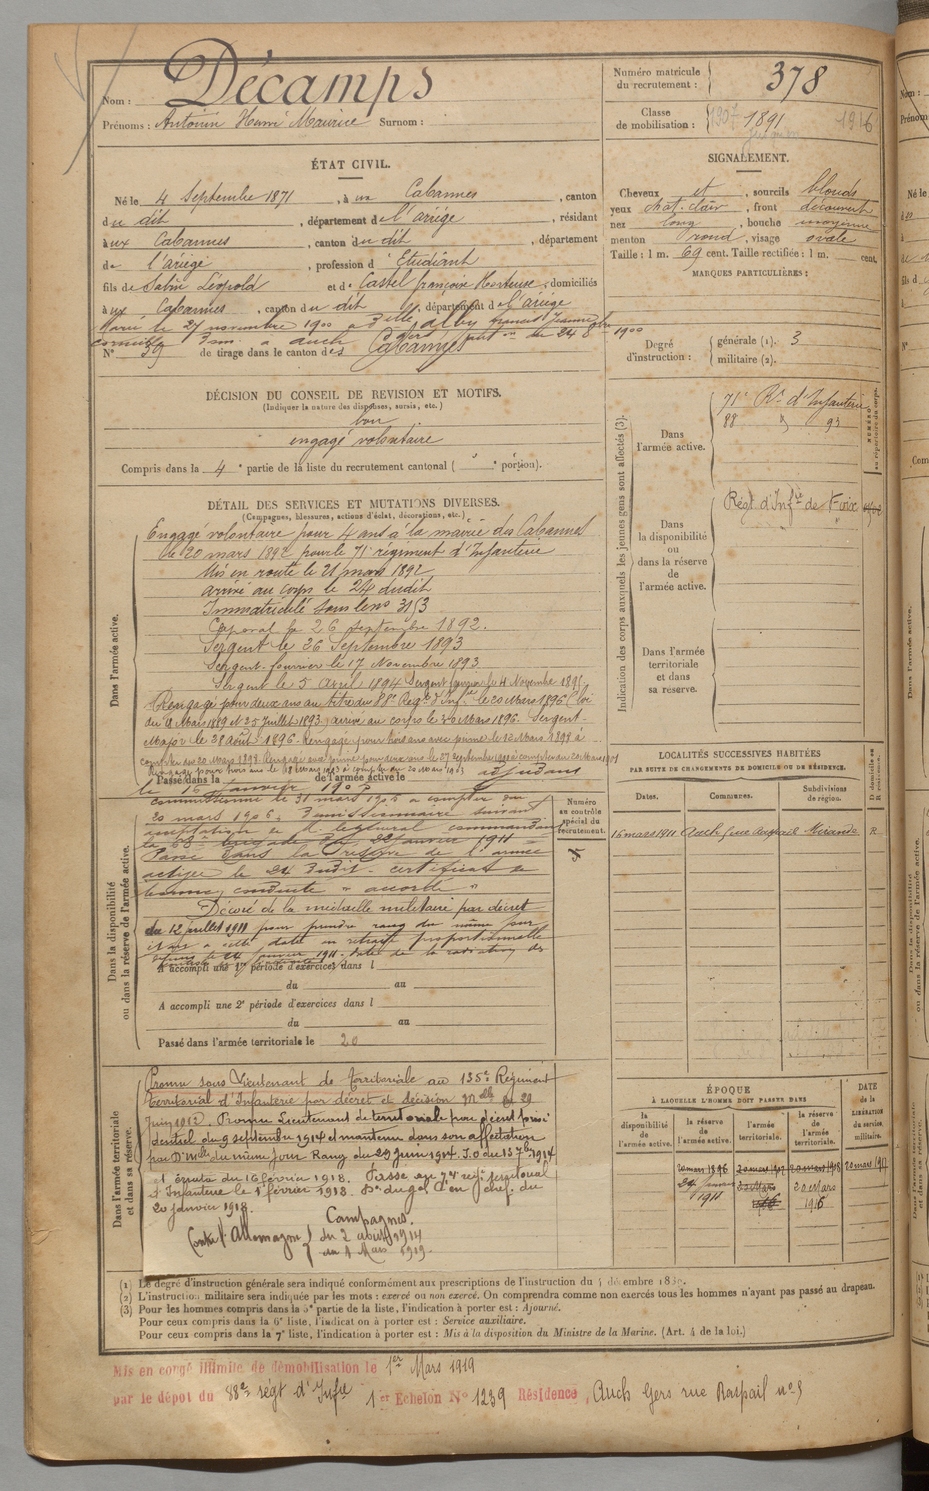 Nom : Décamps
Prénoms : Antonin Henri Maurice Surnom :
Numéro matricule du recrutement : 378
Classe de mobilisation : 1907 1891 1916
ÉTAT CIVIL.
Né le 4 Septembre 1871, à ux Cabannes, canton
du dit, département de l'ariége, résidant
à ux Cabannes, canton du dit, département
de l'ariége, profession d'Etudiant
fils de Sabin Léopold et de Castel françoise Hortense, domiciliés
à ux Cabannes, canton du dit, département de l'ariége
Marié le 27 novembre 1900 à Delle alby Jeanne
à auch Gers du 24 8bre 1900
N° 39 de tirage dans le canton des Cabannes
SIGNALEMENT.
Cheveux et, sourcils blonds
yeux chat. clair, front découvert
nez long, bouche moyenne
menton rond, visage ovale
Taille : 1 m. 69 cent. Taille rectifiée : 1 m. cent.
MARQUES PARTICULIÈRES :
Degré d'instruction : générale (1). 3
militaire (2).
DÉCISION DU CONSEIL DE REVISION ET MOTIFS.
(Indiquer la nature des dispenses, sursis, etc.)
bon
engagé volontaire
Compris dans la 4e partie de la liste du recrutement cantonal ( " e portion).
Indication des corps auxquels les jeunes gens sont affectés (3).
Dans l'armée active.
71e Rt d'Infanterie
88 " 93
Dans la disponibilité ou dans la réserve de l'armée active.
Régt d'Infie de Foix
Dans l'armée territoriale et dans sa réserve.
DÉTAIL DES SERVICES ET MUTATIONS DIVERSES.
(Campagnes, blessures, actions d'éclat, décorations, etc.)
Dans l'armée active.
Engagé volontaire pour 4 ans à la mairie des Cabannes
le 20 mars 1892 pour le 71e régiment d'Infanterie
Mis en route le 21 mars 1892
arrivé au corps le 24 dudit
Immatriculé sous le no 3153
Caporal le 26 septembre 1892.
Sergent le 26 Septembre 1893
Sergent-fourrier le 17 Novembre 1893
Sergent le 5 Avril 1894 Sergent fourrier le 4 Novembre 1895
Rengagé pour deux ans au titre du 88e Régt d'Inf. le 20 Mars 1896 (loi
du 18 Mars 1889 et 25 Juillet 1893) arrivé au corps le 30 Mars 1896. Sergent-
Major le 28 Août 1896. Rengagé pour trois ans avec prime le 12 Mars 1898 à
compter du 20 Mars 1898. Rengagé sans prime pour deux ans le 27 Septembre à compter du 20 Mars 1901
Rengagé pour trois ans le 18 Mars 1903 à compter du 20 Mars 1903
Passé dans la de l'armée active le adjudant
le 16 janvier
Dans la disponibilité ou dans la réserve de l'armée active.
Commissionné le 31 mars 1906 à compter du
20 mars 1906. Démissionnaire suivant
acceptation de M. le Général commandant
la 68e brigade du 22 janvier 1911
Passé dans la réserve de l'armée
active le 24 dudit. Certificat de
bonne conduite " accordé "
Décoré de la médaille militaire par décret
du 12 juillet 1911 pour prendre rang du même jour
A accompli une 1re période d'exercices dans l
du au
A accompli une 2e période d'exercices dans l
du au
Passé dans l'armée territoriale le 20
Numéro au contrôle spécial du recrutement.
LOCALITÉS SUCCESSIVES HABITÉES
PAR SUITE DE CHANGEMENTS DE DOMICILE OU DE RÉSIDENCE.
Dates. Communes. Subdivisions de région. D domicile ou R résidence.
16 mars 1911 Auch, rue Raspail Mirande R
Dans l'armée territoriale et dans sa réserve.
Promu sous Lieutenant de territoriale au 135e Régiment
territorial d'Infanterie par décret et décision mlle du 29
Juin 1912. Promu Lieutenant de territoriale par décret prési-
dentiel du 9 septembre 1914 et maintenu dans son affectation
par Dn mlle du même jour Rang du 29 Juin 1914. J.O du 13 7bre 1914
du 16 février 1918. Passé au 74e régt territorial
d'Infanterie le 1er février 1918. Dn du gal Con en chef du
20 janvier 1918.
Campagnes.
Contre l'Allemagne du 2 août 1914
au 4 Mars 1919.
ÉPOQUE
À LAQUELLE L'HOMME DOIT PASSER DANS
la disponibilité de l'armée active. la réserve de l'armée active. l'armée territoriale. la réserve de l'armée territoriale. DATE de la LIBÉRATION du service militaire.
20 mars 1896 20 mars 1902 20 mars 1908 20 mars 1917
24 janvier 1911 20 Mars 20 Mars 1916
(1) Le degré d'instruction générale sera indiqué conformément aux prescriptions de l'instruction du 4 décembre 1889.
(2) L'instruction militaire sera indiquée par les mots : exercé ou non exercé. On comprendra comme non exercés tous les hommes n'ayant pas passé au drapeau.
(3) Pour les hommes compris dans la 5e partie de la liste, l'indication à porter est : Ajourné.
Pour ceux compris dans la 6e liste, l'indication à porter est : Service auxiliaire.
Pour ceux compris dans la 7e liste, l'indication à porter est : Mis à la disposition du Ministre de la Marine. (Art. 4 de la loi.)
Mis en congé illimité de démobilisation le 1er Mars 1919
par le dépôt du 88e régt d'Infie 1er Echelon N° 1239 Résidence, Auch Gers rue Raspail no 9